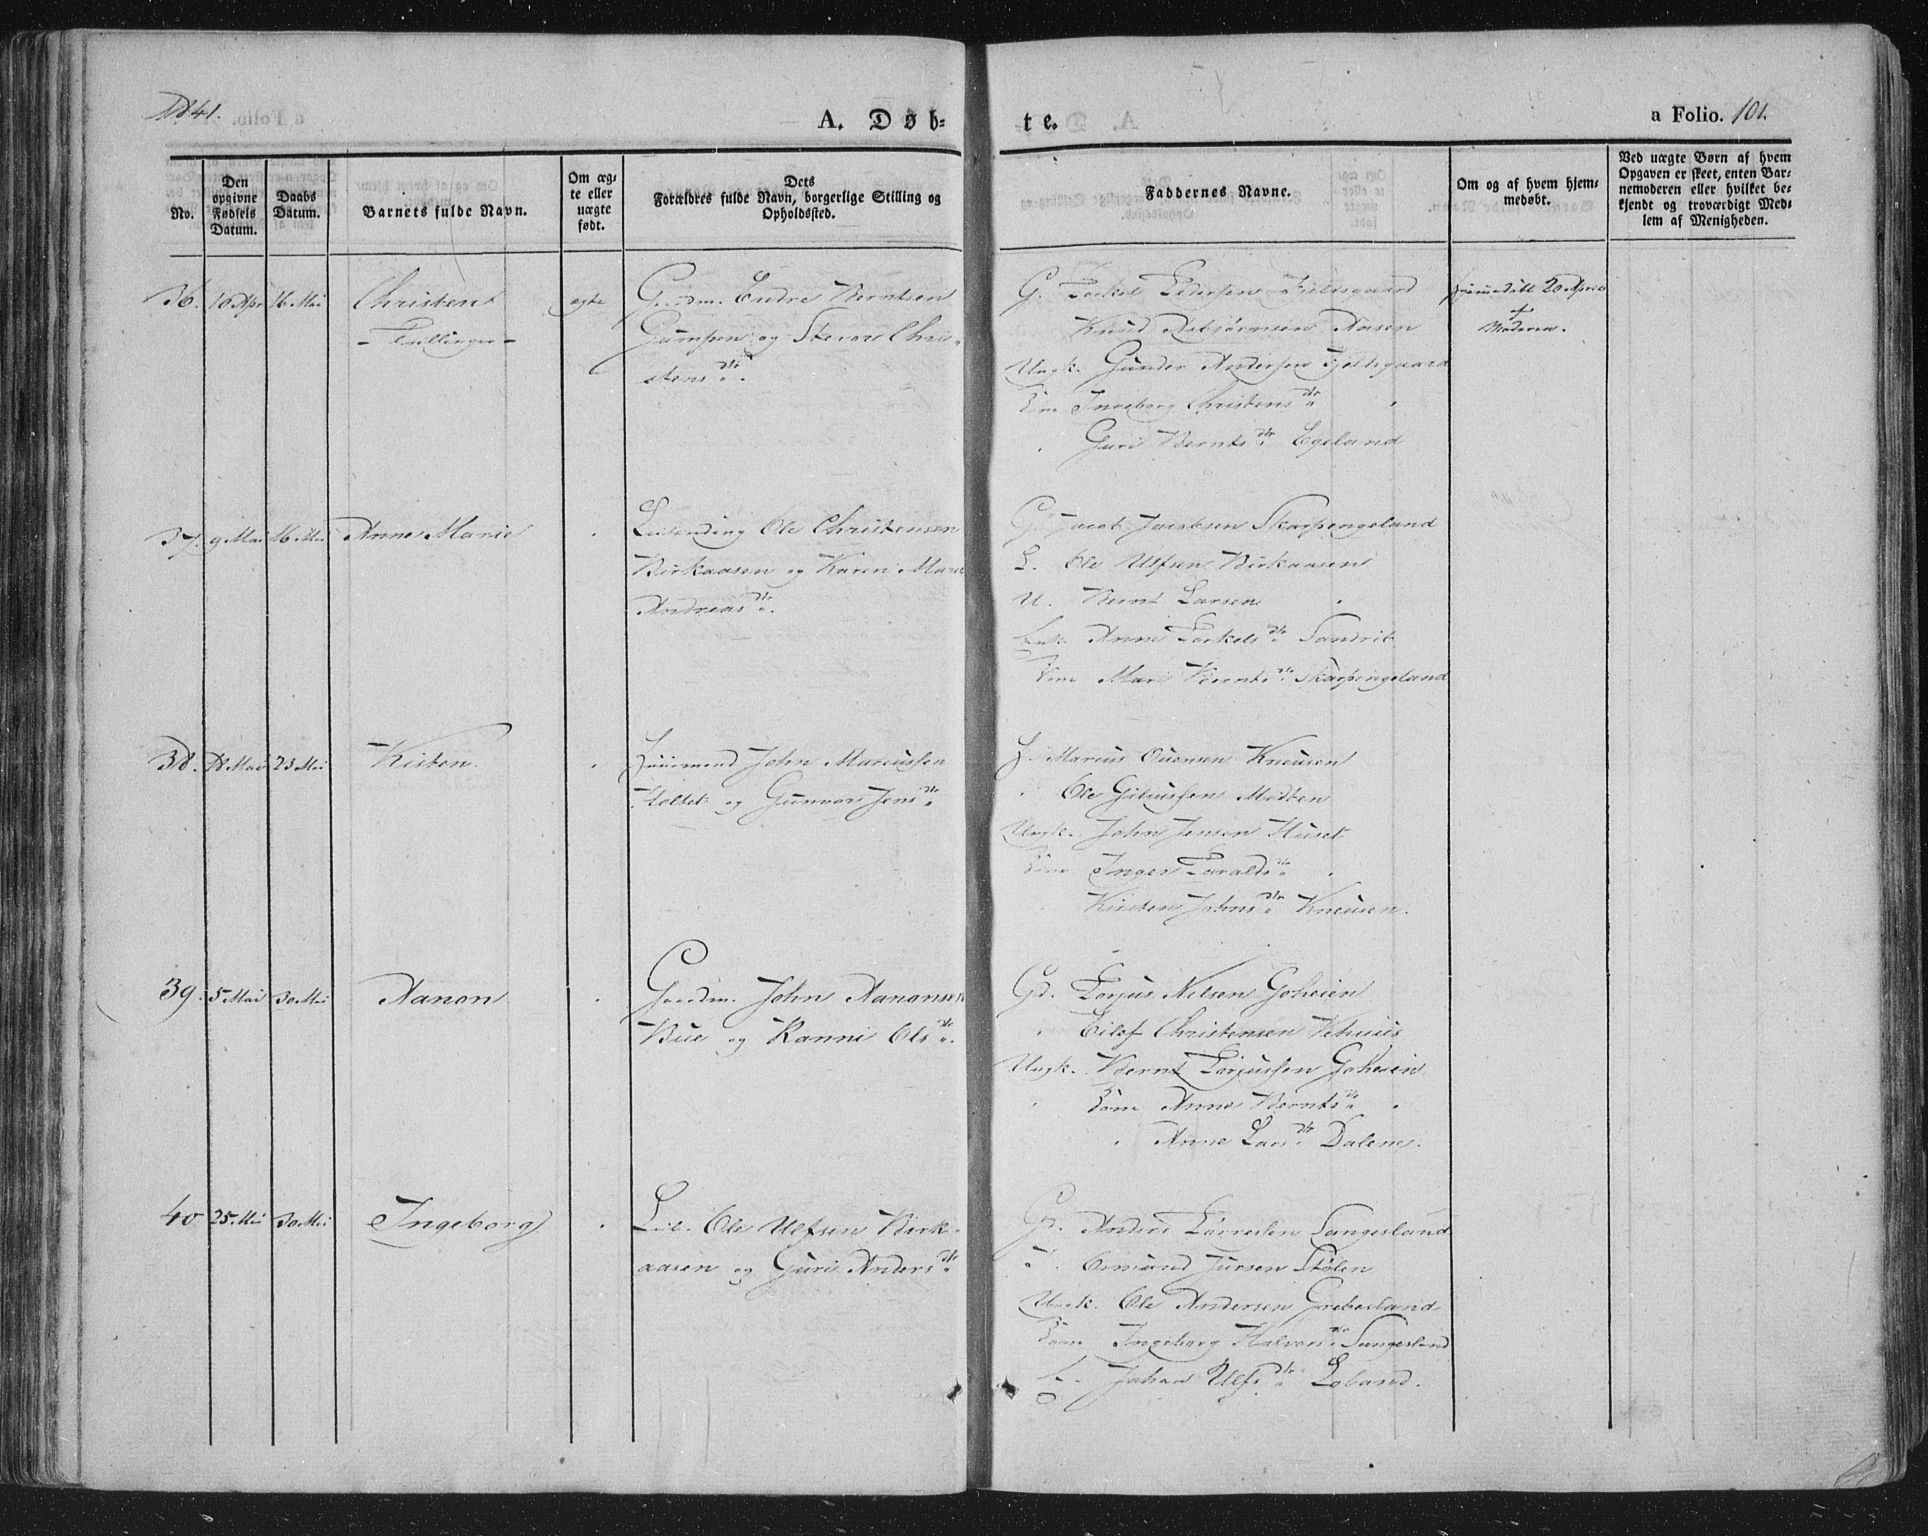 1841.
A. Døb-
te.
a Folio. 101.
No.
Den opgivne Fødsels Datum.
Daabs Datum.
Barnets fulde Navn.
Om ægte eller uægte født.
Dets Forældres fulde Navn, borgerlige Stilling og Opholdssted.
Faddernes Navne.
Om og af hvem hjemmedøbt.
Ved uægte Børn af hvem Opgaven er skeet, enten Barnemoderen eller hvilket bekjendt og troværdigt Medlem af Menigheden.
36. 18 Apr 16 Mai Christen ægte Gaardm. Endre Berntsen
- Tvillinger -
Gumpen og Chri-
stens dtr.
G. Torkel Pedersen
Knud Asbjørnsen Aasen
Ungk. Gunder Andersen Fjeldsgaard
Kone Ingeborg Christens dtr "
" Guri Bernts dtr Egeland
hjemmedøbt 20 April
Moderen.
37. 9 Mai 16 Mai Anne Marie " Leilending Ole Christensen
Birkaasen og Karen Marie
Andreas dtr.
G. Jacob Jacobsen Skarpengeland
L. Ole Ulfsen Birkaasen
U. Bernt Larsen "
Enk. Anne Torkels dtr Sandvik
Kone Mari Bernts dtr Skarpengeland
38. 18 Mai 23 Mai Kisten " Huusmand John Marcussen
Holtet og Gunvor Jens dtr
H. Marcus Ouensen Kneusen
" Ole Moseen
Ungk. John Jensen Huset
Kone Inger Taralds dtr "
Kirsten Johns dtr Kneusen.
39. 5 Mai 30 Mai Aanon " Gaardm. John Aanonsen
Bue og Ranni Ols dtr.
Gd. Torjus Nielsen Goheien
" Eilef Christensen Vehuus
Ungk. Bernt Torjussen Goheien
" Kone Anne Bernts dtr "
" Anne Lars dtr Dalene.
40 25 Mai 30 Mai Ingeborg " Leil. Ole Ulfsen Birk-
aasen og Guri Anders dtr
Gd. Anders Torresen Langesland
" Osmund Juesen Stølen
Ungk. Ole Andersen Grebesland
Kone Ingeborg Halvors dtr Langesland
Johan Ulfs dtr Loland.